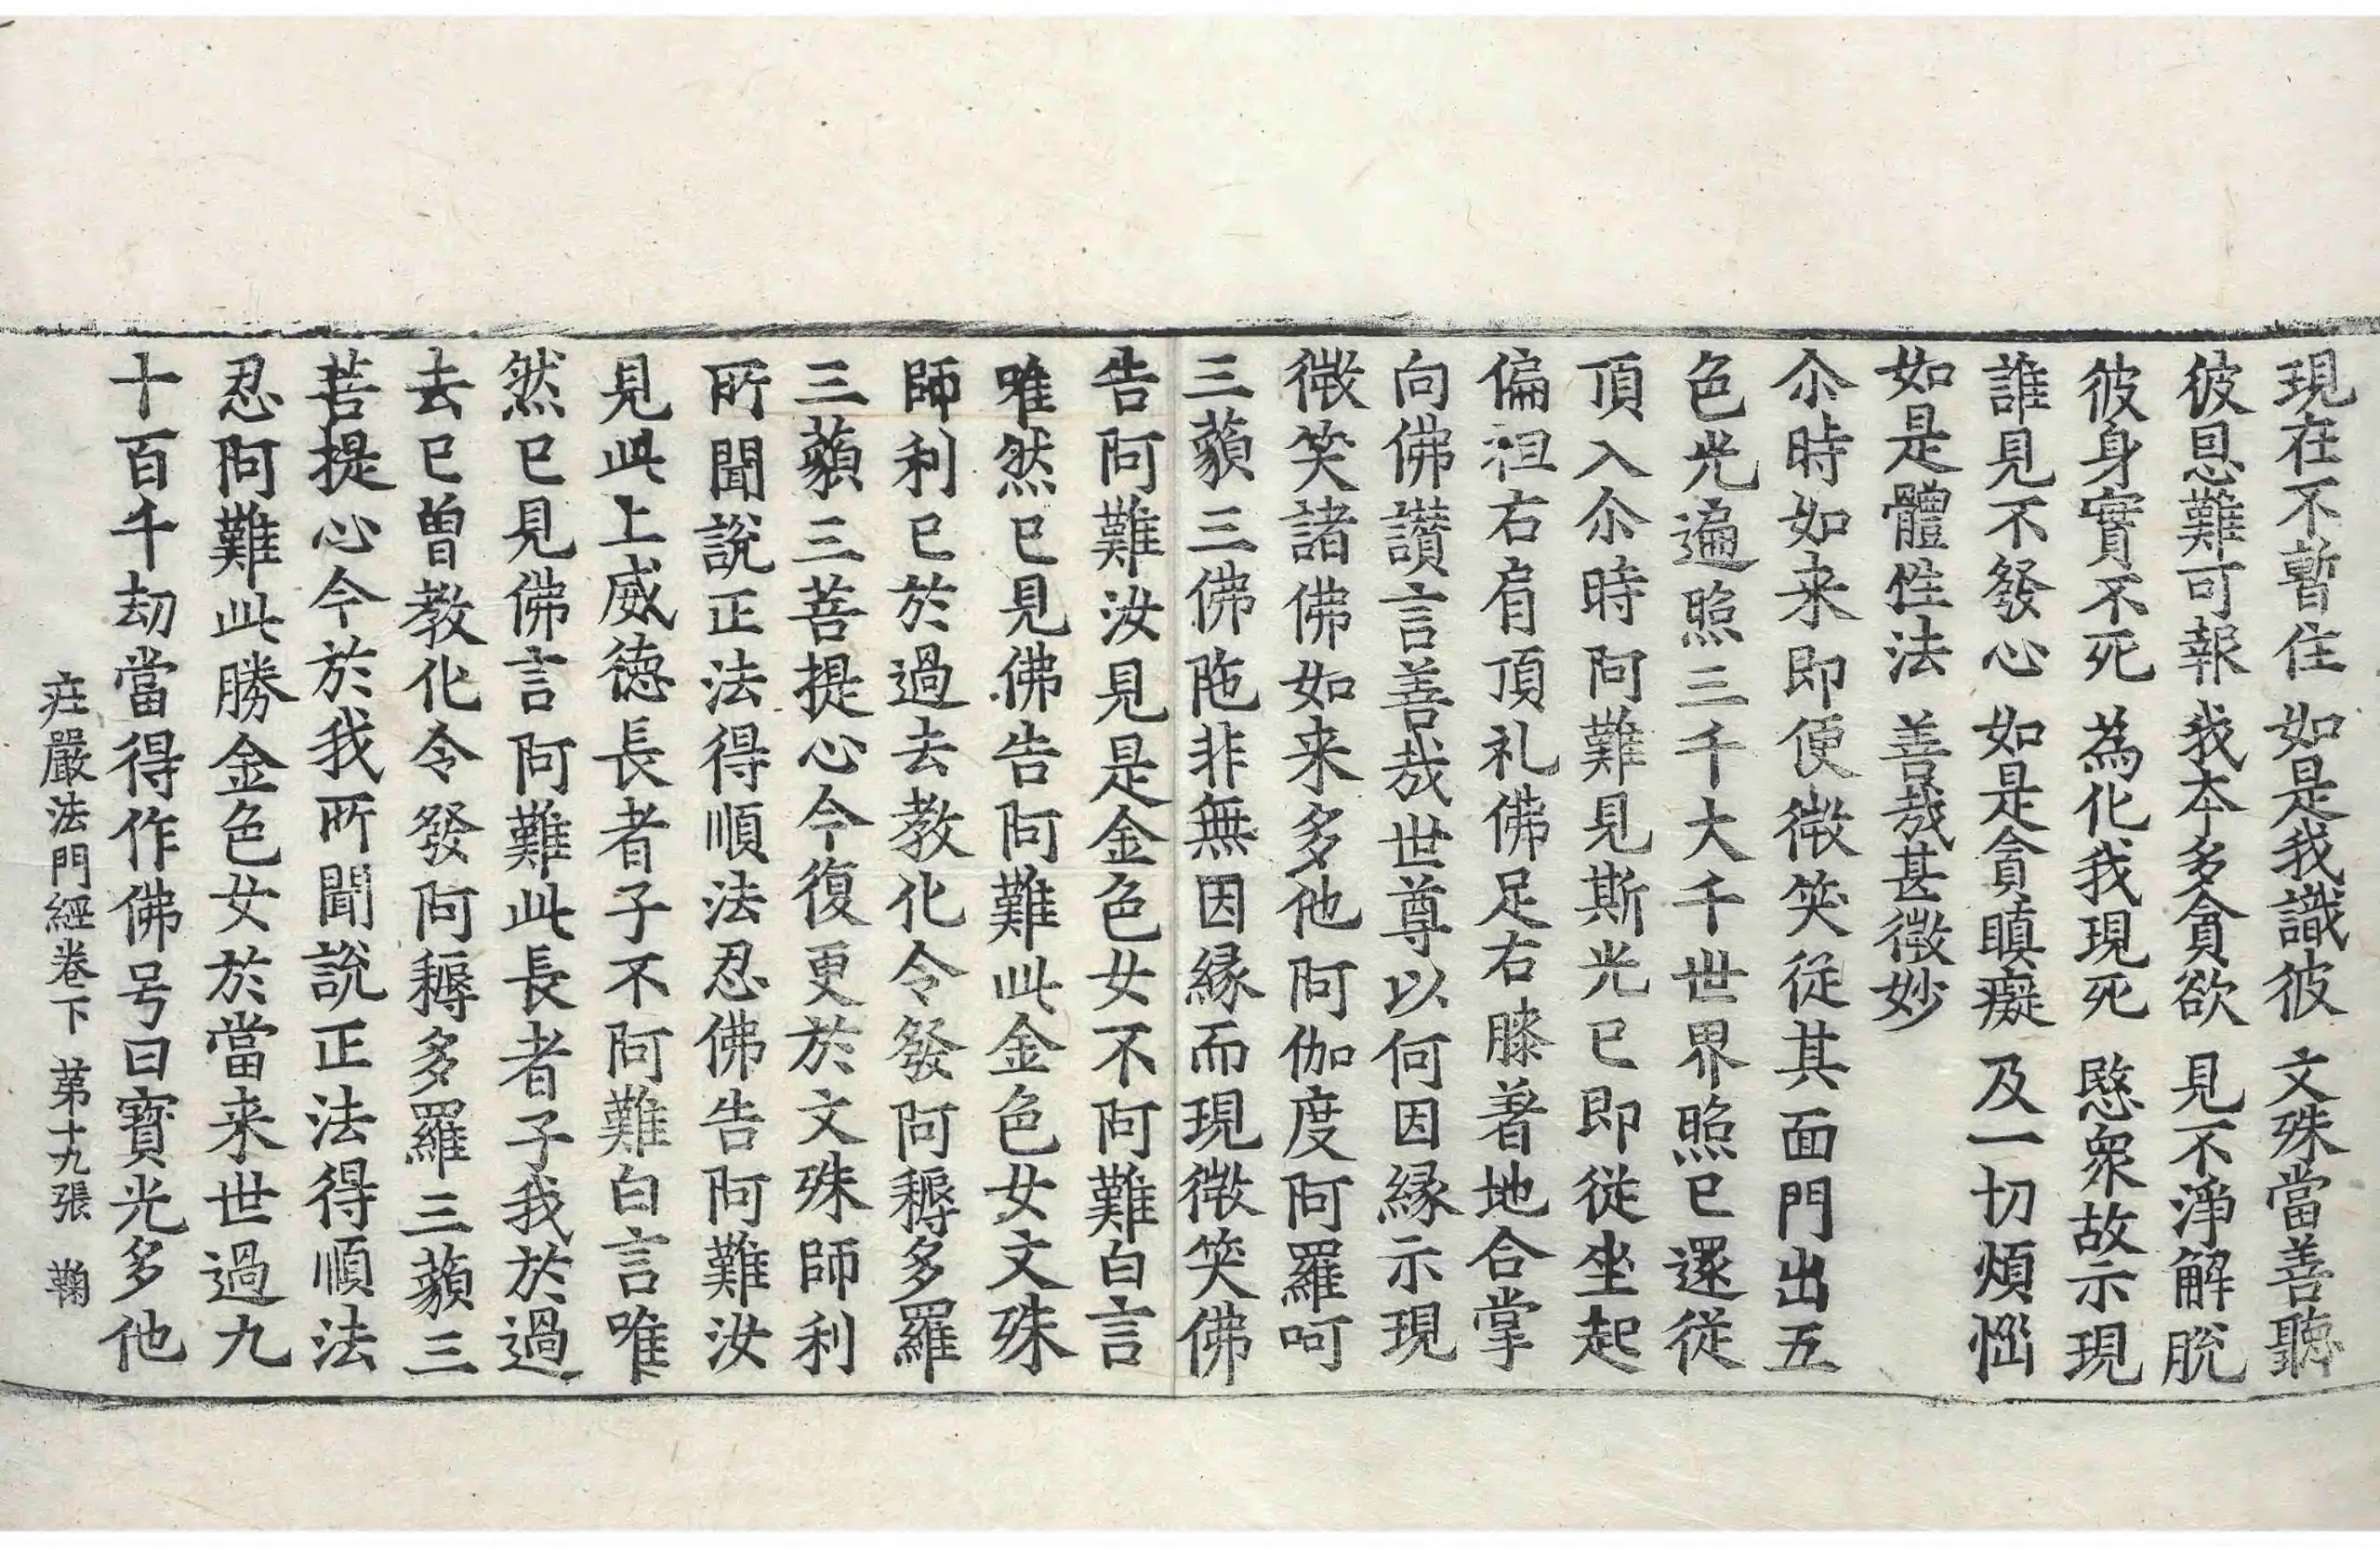 現在不暫住　如是我識彼　文殊當善聽
彼恩難可報　我本多貪欲　見不淨解脫
彼身實不死　為化我現死　愍衆故示現
誰見不發心　如是貪瞋癡　及一切煩惱
如是體性法　善哉甚微妙
尒時如来即便微笑從其面門出五
色光遍照三千大千世界照已還從
頂入尒時阿難見斯光已即從坐起
偏袒右肩頂礼佛足右膝著地合掌
向佛讃言善哉世尊以何因縁示現
微笑諸佛如来多他阿伽度阿羅呵
三藐三佛陁非無因縁而現微笑佛
告阿難汝見是金色女不阿難白言
唯然已見佛告阿難此金色女文殊
師利已於過去教化令發阿耨多羅
三藐三菩提心今復更於文殊師利
所聞說正法得順法忍佛告阿難汝
見此上威德長者子不阿難白言唯
然已見佛言阿難此長者子我於過
去已曾教化令發阿耨多羅三藐三
菩提心今於我所聞說正法得順法
忍阿難此勝金色女於當来世過九
十百千劫當得作佛号曰寶光多他
庄嚴法門經卷下　苐十九張　鞠